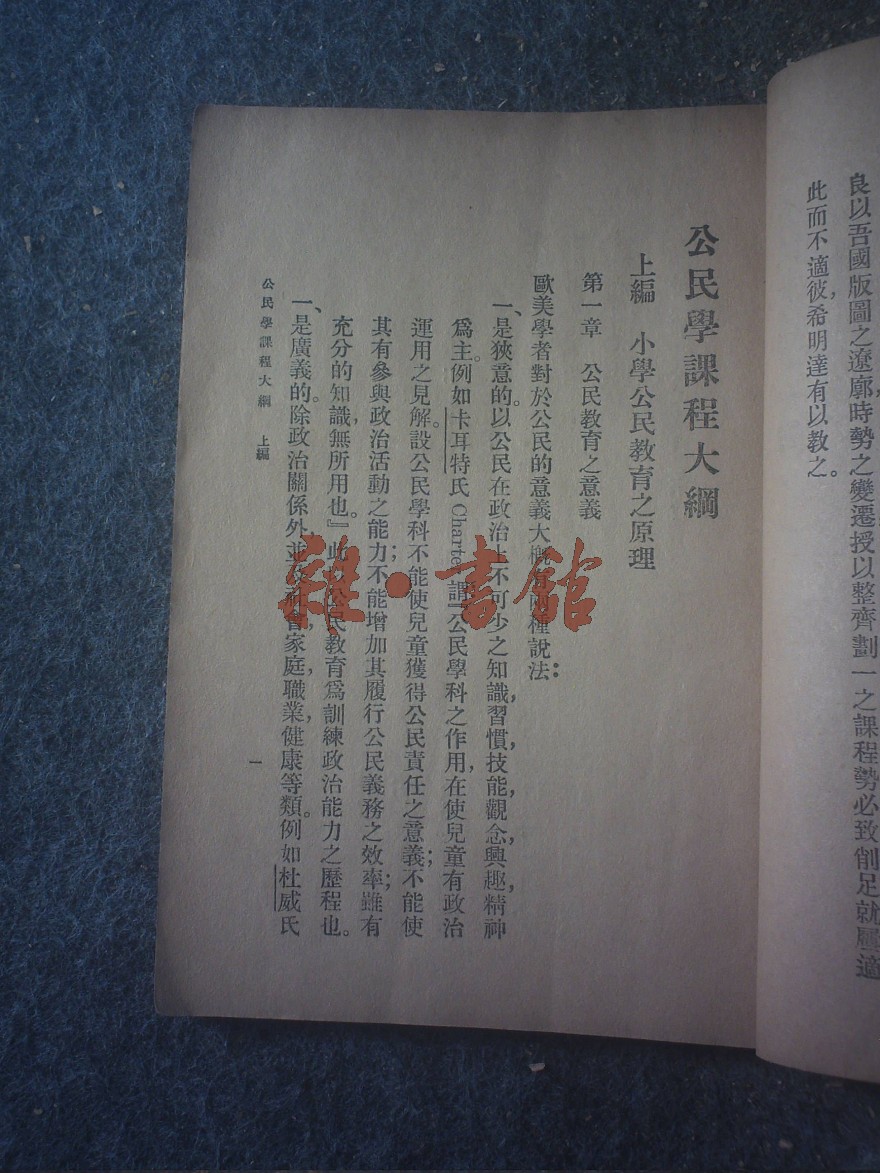 良以吾國版圖之遼廓,時勢之變遷,授以整齊劃一之課程,勢必致削足就屨,適
此而不適彼,希明達有以教之。
公民學課程大綱
上編 小學公民教育之原理
第一章 公民教育之意義
歐美學者對於公民的意義,大概有兩種說法:
一、是狹意的。以公民在政治上不可少之知識,習慣,技能,觀念,興趣,精神
爲主。例如卡耳特氏 Charter 謂『公民學科之作用,在使兒童有政治
運用之見解。設公民學科不能使兒童獲得公民責任之意義;不能使
其有參與政治活動之能力;不能增加其履行公民義務之效率;雖有
充分的知識,無所用也。』此以公民教育爲訓練政治能力之歷程也。
一、是廣義的。除政治關係外,並及社會,家庭,職業,健康等類。例如杜威氏
公民學課程大綱 上編
一
雜·書館